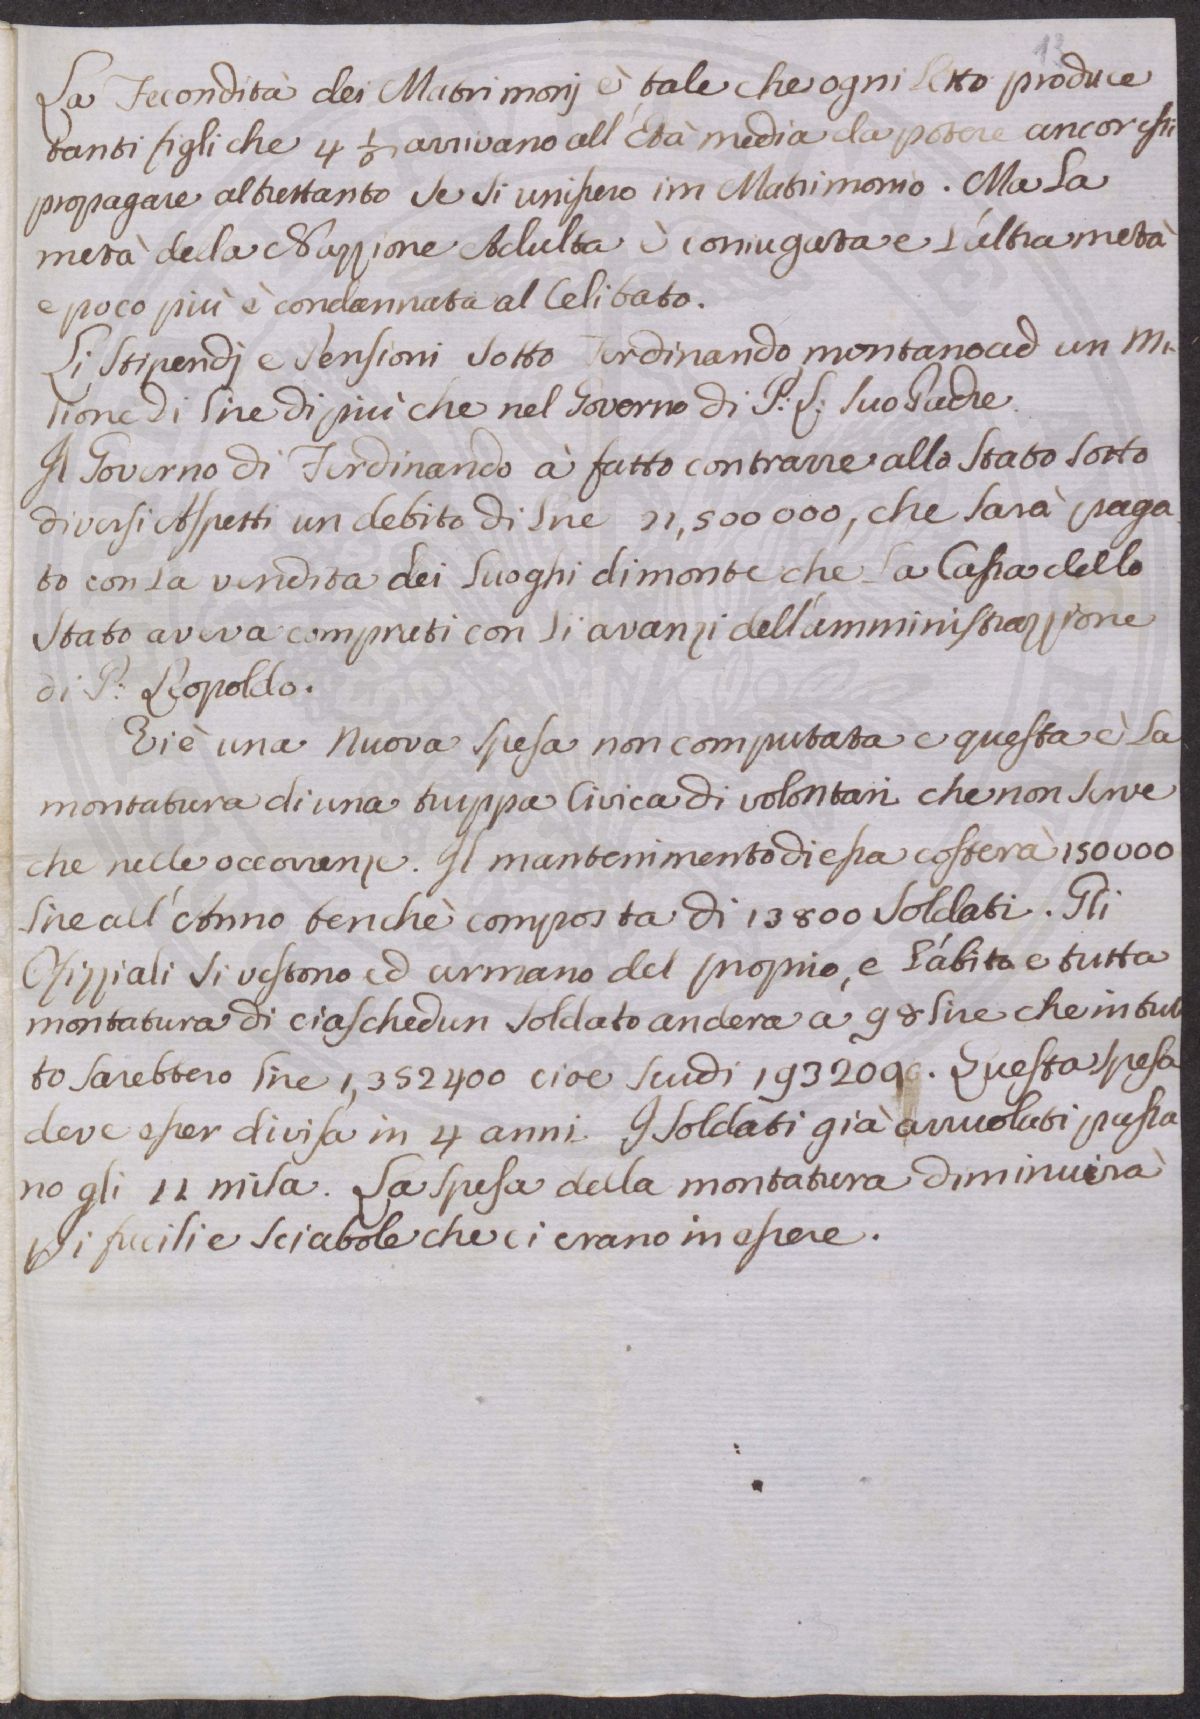 13
La Fecondità dei Matrimonj è tale che ogni Letto produce
tanti figli che 4 1/5 arrivano all'Età media da potere ancor essi
propagare altrettanto se si unissero im Matrimonio. Ma La
metà della Nazzione Adulta è coniugata e L'altra metà
e poco più è condannata al Celibato.
Li Stipendj e Pensioni sotto Ferdinando montano ad un Mi-
lione di Lire di più che nel Governo di P: L: Suo Padre
Il Governo di Ferdinando à fatto contrarre allo Stato Sotto
diversi Aspetti un debito di Lire 21,500000, che Sarà paga
to con La vendita dei Luoghi di monte che La Cassa dello
Stato aveva comprati con Li avanzi dell'amministrazzione
di P: Leopoldo.
Vi è una Nuova Spesa non computata e questa è La
montatura di una truppa Civica di volontari che non Serve
che nelle occorrenze. Il mantenimento di essa costerà 150000
Lire all'Anno benchè composta di 13800 Soldati. Gli
Ofizziali Si vestono ed armano del proprio, e L'abito e tutta
montatura di ciaschedun Soldato anderà a 98 Lire che in tut
to Sarebbero Lire 1,352400 cioè Scudi 193200. Questa Spesa
deve esser divisa in 4 anni. I Soldati già arruolati passa
no gli 11 mila. La Spesa della montatura diminuirà
p i fucili e Sciabole che ci erano in essere.